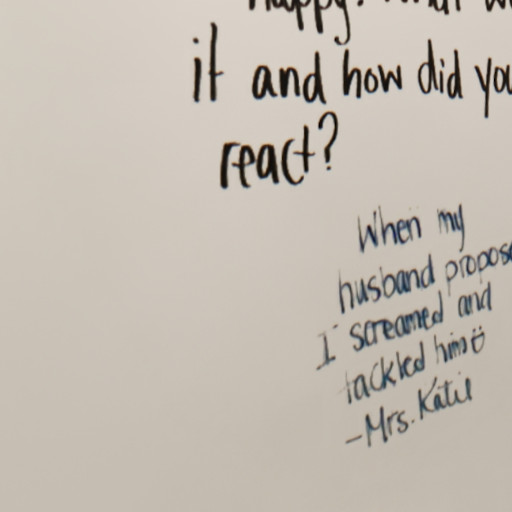 happy?
it and how did you
react?
When my
husband propose
I screamed and
tackled him
-Mrs. Katie